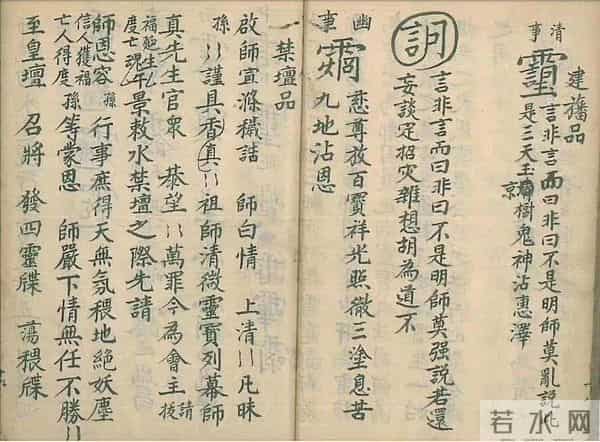 建旛品
清事
言非言而曰非曰不是明師莫亂說此
是三天玉京樹鬼神沾惠澤
訶
言非言而曰非曰不是明師莫强說若還
妄談定招灾雜想胡為道不
幽事
慈尊放百寶祥光照徹三塗息苦
九地沾恩
一禁壇品
啟師宣滌穢誥 師白情 上清〻凡昧
孫〻謹具香真〻祖師清微靈寶列幕師
真先生官衆 恭望〻萬罪今為會主
請
度亡魂
午景敕水禁壇之際先請
師恩容孫 行事庶得天無氛穢地絕妖塵
信人獲福
亡人得度
孫等蒙恩 師嚴下情無任不勝〻
至皇壇 召將 發四靈牒 蕩穢牒
若水网